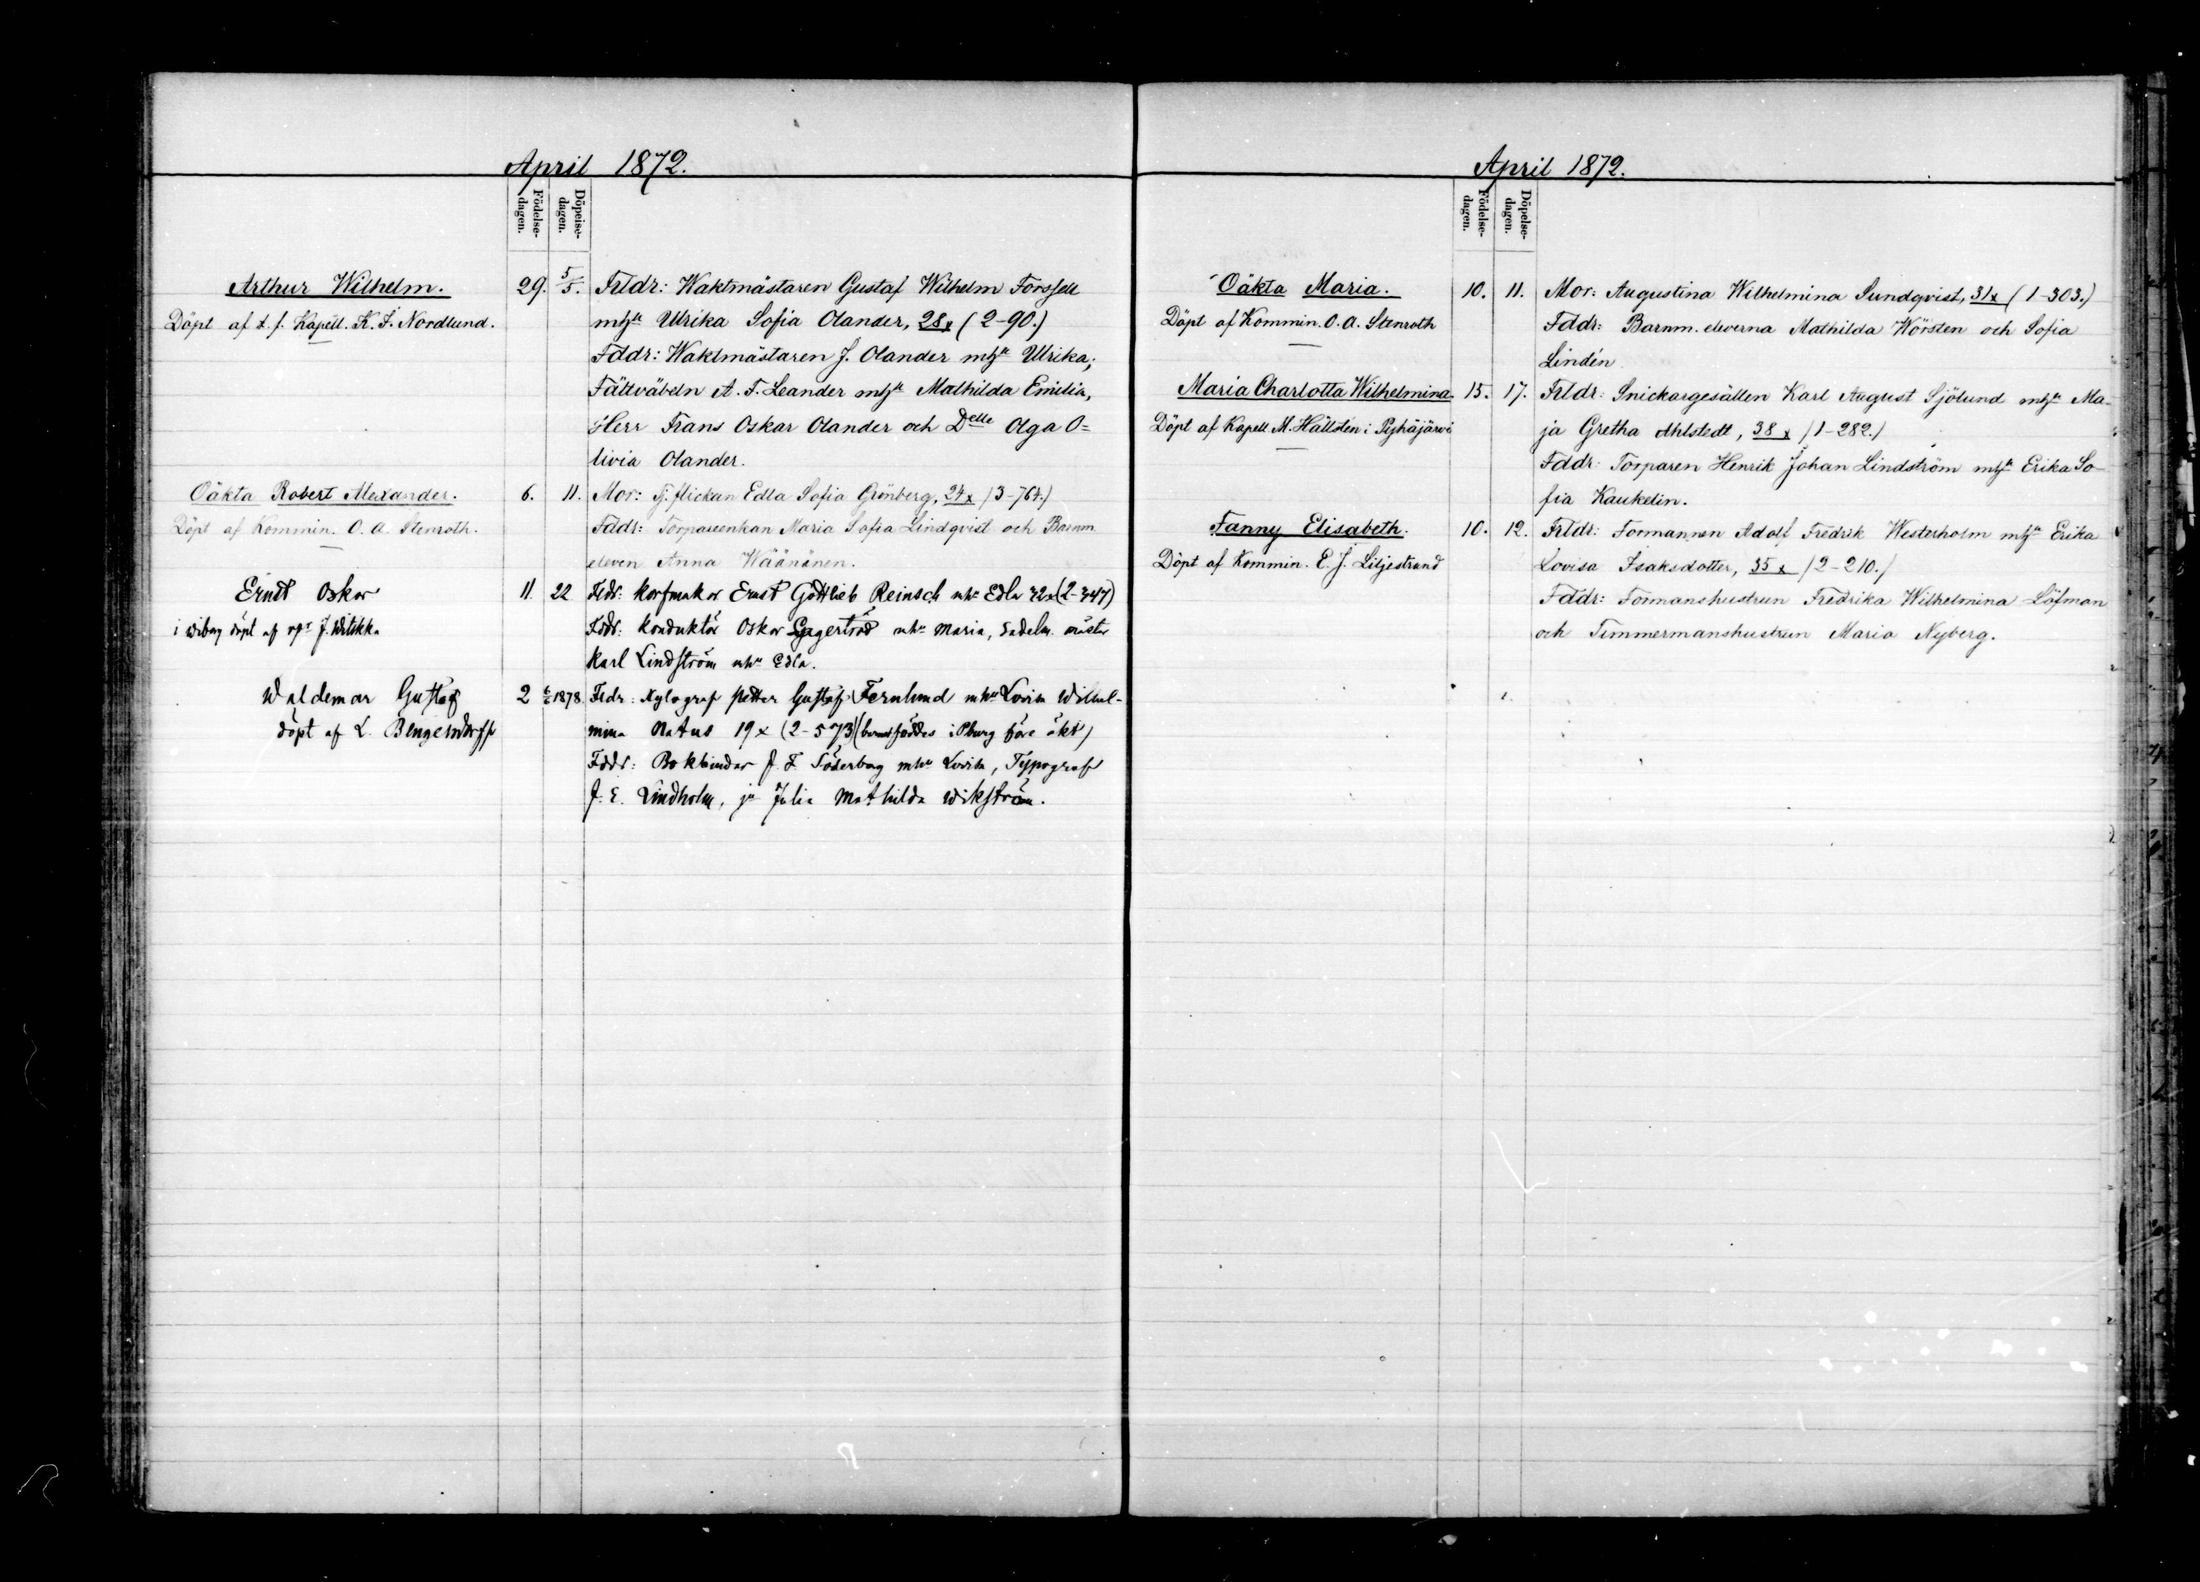 April 1872.
Födelse-
dagen.
Döpelse-
dagen.
Arthur Wilhelm. 29. 5/5. Frldr: Waktmästaren Gustaf Wilhelm Forssell
Döpt af t. f. Kapell. K. F. Nordlund. mhu Ulrika Sofia Olander, 28 x (2-90.)
Fddr: Waktmästaren J. Olander mhu Ulrika;
Fältväbeln A. F. Leander mhu Mathilda Emilia,
Herr Frans Oskar Olander och Delle Olga O=
livia Olander.
Oäkta Robert Alexander. 6. 11. Mor: Tj. flickan Edla Sofia Grönberg, 24 x (3-764.)
Döpt af Kommin. O. A. Stenroth. Fddr: Torpareenkan Maria Sofia Lindqvist och Barnm.
eleven Anna Wäänänen.
Ernst Oskar 11. 22 Fldr: Korfmakar Ernst Gottlieb Reinsch mhu Edla 32 x (2-347)
i Wiborg döpt af J. Witikka Fddr: Konduktör Oskar mhu Maria, Sadelm. mäster
Karl Lindström mhu Edla.
Waldemar Gustaf 2 1878 Fldr: Xylograf Petter Gustaf Fernlund mhu Lovisa Wilhel-
döpt af L. Bengelsdorff mina Natus 19 x (2-573) (barnet föddes i Pburg före äkt)
Fddr: Bokbindar J. F. Söderberg mhu Lovisa, Typograf
J. E. Lindholm, jfr Julia Mathilda Wikström.
April 1872.
Födelse-
dagen.
Döpelse-
dagen.
Oäkta Maria. 10. 11. Mor: Augustina Wilhelmina Sundqvist, 31 x (1-303.)
Döpt af Kommin. O. A. Stenroth Fddr: Barnm. eleverna Mathilda Wörsten och Sofia
Lindén.
Maria Charlotta Wilhelmina. 15. 17. Frldr: Snickargesällen Karl August Sjölund mhu Ma-
Döpt af Kapell M. Hällstén i Pyhäjärvi ja Gretha Ahlstedt, 38 x (1-282.)
Fddr: Torparen Henrik Johan Lindström mhu Erika So-
fia Kaukelin.
Fanny Elisabeth. 10. 12. Frldr: Formannen Adolf Fredrik Westerholm mhu Erika
Döpt af Kommin. E. J. Liljestrand Lovisa Isaksdotter, 35 x (2-210.)
Fddr: Formanshustrun Fredrika Wilhelmina Löfman
och Timmermanshustrun Maria Nyberg.